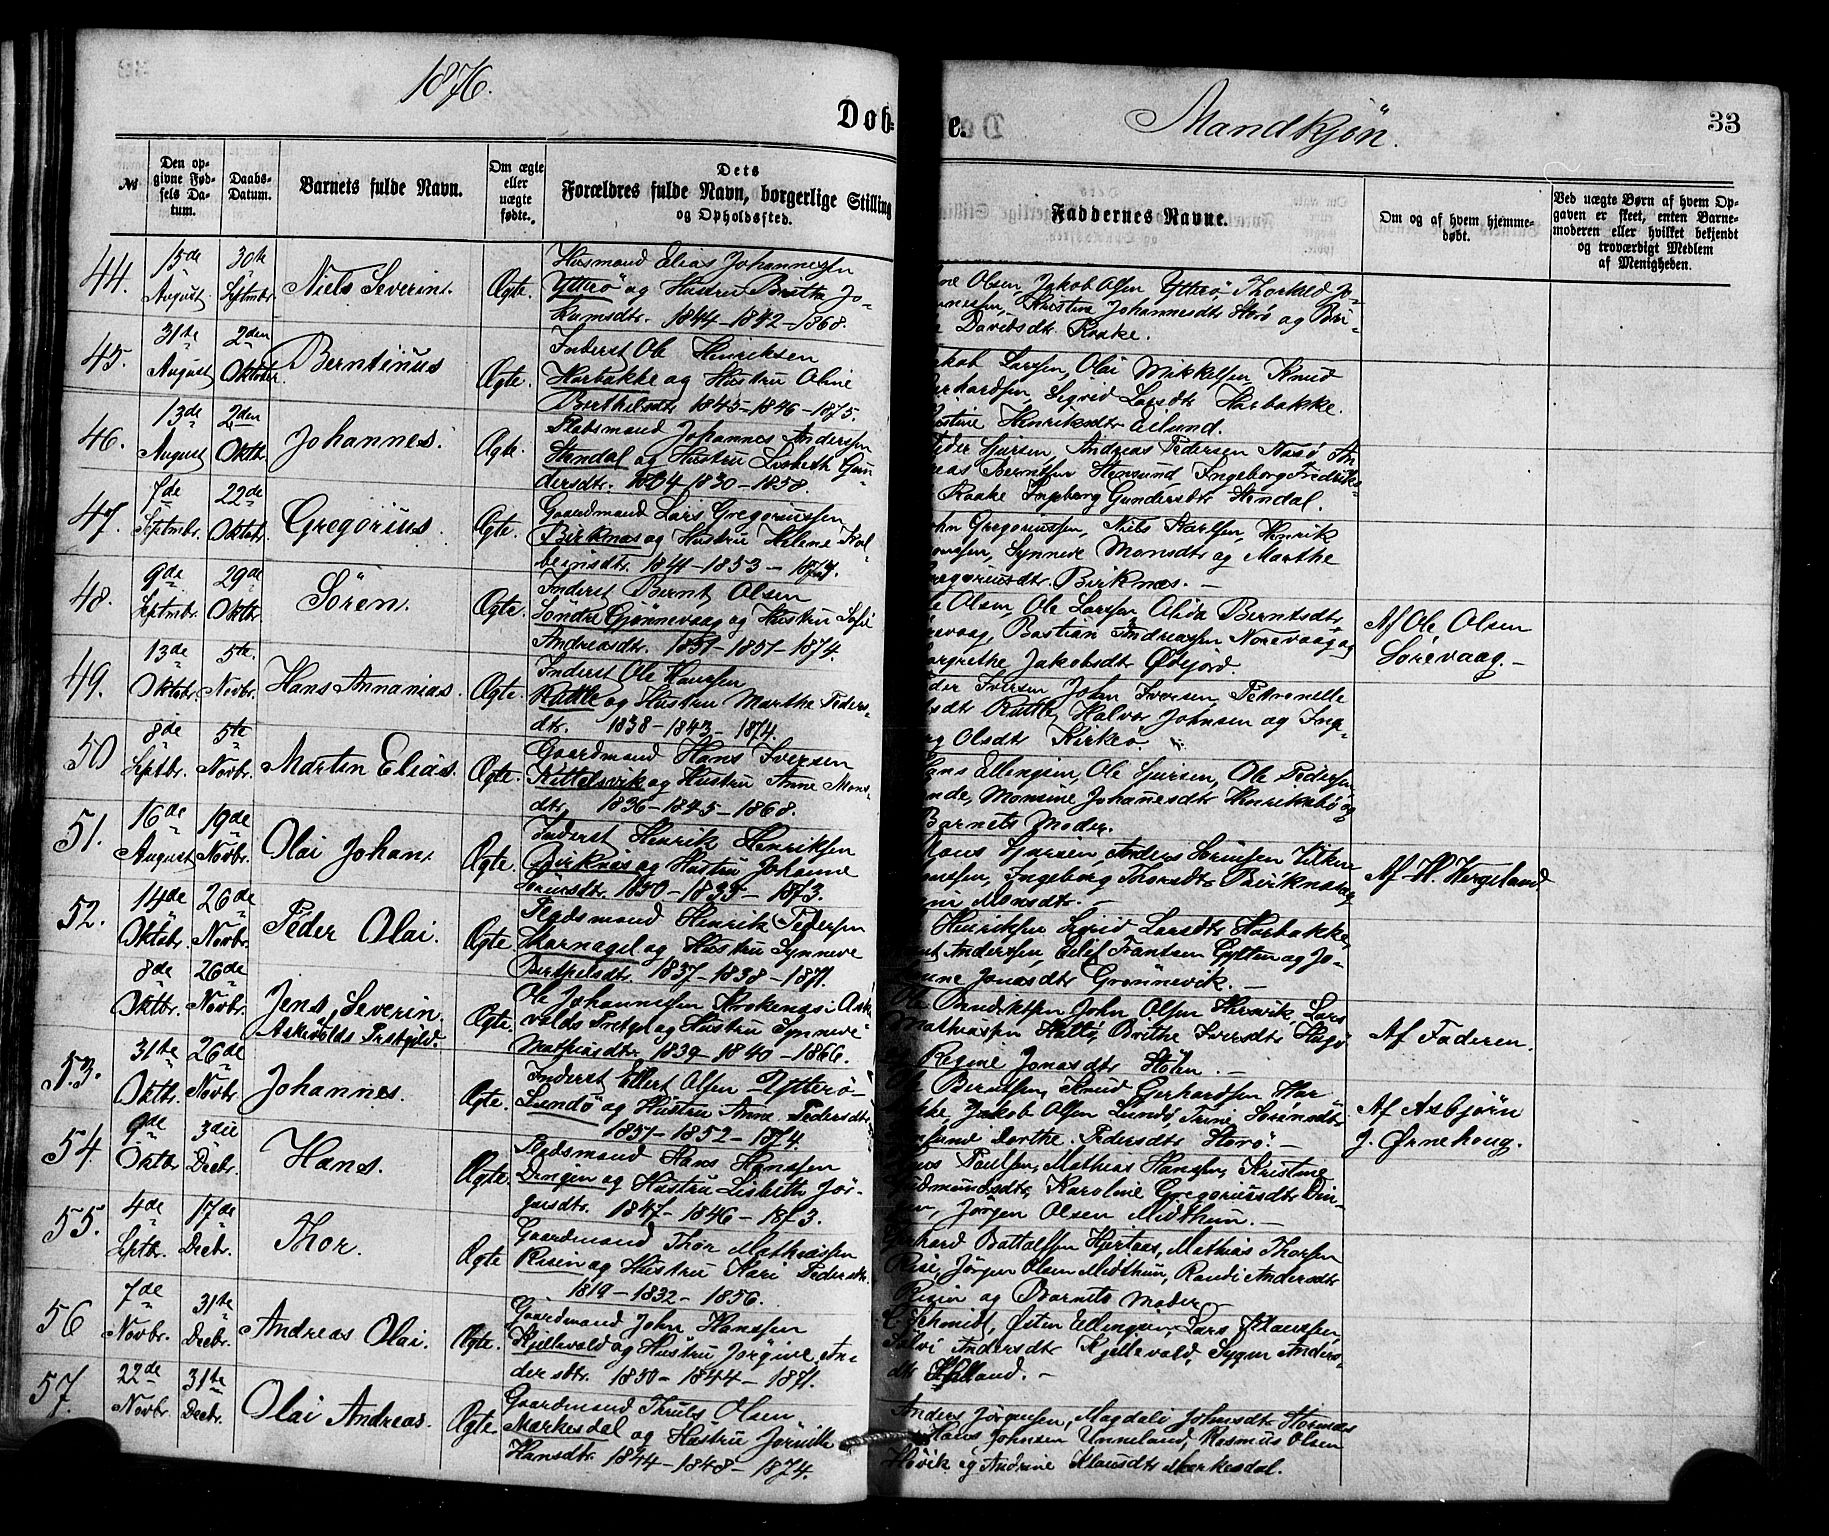 1876.
Døb=
e.
Mandkjøn.
33
№
Den op-
givne Fød-
sels Da-
tum.
Daabs-
Datum.
Barnets fulde Navn.
Om ægte
eller
uægte
fødte.
Dets
Forældres fulde Navn, borgerlige Stilling
og Opholdssted.
Faddernes Navne.
Om og af hvem hjemme-
døbt.
Ved uægte Børn af hvem Op-
gaven er skeet, enten Barne-
moderen eller hvilket bekjendt
og troværdigt Medlem
af Menigheden.
44. 15de August 30te Septmbr. Niels Severin. Ægte.
Husmand Elias Johannesen
Ytterö og Hustru Britha Jo-
kumsdtr. 1844-1842-1868.
ne Olsen, Jakob Olsen Ytterö, Thorkild Jo-
nnesen, Kristine Johannesdtr Storö og Bri-
Davidsdtr Raake.
45. 31te August 2den Oktober. Berntinus Ægte.
Inderst Ole Henriksen
Harbakke og Hustru Oline
Berthelsdtr 1845-1846-1875.
akob Larssen, Olai Mikkelsen, Knud
Gerhardsen, Sigrid Larsdtr Harbakke.
Kristine Henriksdtr Eilund.
46. 13de August 2den Oktb. Johannes. Ægte.
Pladsmand Johannes Anderssen
Stendal og Hustru Lisbeth Gun-
dersdtr. 1804-1830-1858.
Peder Sjursen, Andreas Pedersen Nasö An-
reas Berntsen Stensund, Ingeborg Fredriks-
Raake Ingeborg Gundersdtr Stendal.
47. 7de Septmbr. 22de Oktobr. Gregorius Ægte.
Gaardmand Lars Gregoriussen
Birknæs og Hustru Helene Kol-
beinsdtr. 1841-1853-1873.
John Gregoriussen, Niels Karlsen, Henrik
onsen, Synneve Monsdtr og Marthe
Gregoriusdtr. Birknæs.-
48. 9de Septmbr. 29de Oktbr Sören. Ægte.
Inderst Bernt Olsen
Söndre Grönnevaag og Hustru Sofie
Andreasdtr. 1851-1851-1874.
Ole Olsen, Ole Larssen Alida Berntsdtr
örevaag, Bastian Andreassen Norevaag og
argrethe Jakobsdtr Øefjord.
Af Ole Olsen
Sørevaag.-
49. 13de Oktobr. 5te Novbr. Hans Annanias. Ægte.
Inderst Ole Hanssen
Rutle og Hustru Marthe Peders-
dtr. 1838-1843-1874.
Peder Iversen, John Iversen, Petronelle
dtr Rutle, Halvor Johnsen og Inge-
Olsdtr Kirkeö.
50 8de Septbr. 5te Novbr. Martin Elias. Ægte.
Gaardmand Hans Iversen
Kittelsvik og Hustru Anne Mons-
dtr. 1836-1845-1868.
Hans Ellingsen, Ole Sjursen, Ole Pedersen
nde, Monsine Johanesdtr Henriksbö og
Barnets Moder.
51. 16de August 19de Novbr. Olai Johan. Ægte.
Inderst Henrik Henriksen
Birknæs og Hustru Johanne
Sörinsdtr. 1850-1835-1873.
Mons Sjursen, Anders Sörinsen
onssen, Ingeborg Thorsdtr Birknæs og
Monsdtr.-
Af H. Hergeland
52. 14de Oktobr. 26de Novbr. Peder Olai. Ægte.
Pladsmand Henrik Pedersen
Skarnagel og Hustru Synneve
Berthelsdtr. 1837-1838-1871.
Henriksen Sigrid Larsdtr Harbakke,
nt Anderssen, Eilif Frantsen Gylten og Jo-
nne Jonasdtr Grönnevik.-
8de Oktbr. 26de Novbr. Jens Severin.
Askevolds Prstgjld. Ægte.
Ole Johannessen Krokenæs i Aske-
volds Prstgl og Hustru Synneve
Mathiasdtr. 1839-1840-1866.
Ole Bendiktsen John Olsen Lars
Mathiassen Brithe Iversdtr
Regine Jonasdtr Hölen.-
Af Faderen.
53. 31te Oktbr. 26de Novbr. Johannes. Ægte.
Inderst Ellert Olsen Ytterö-
Lundö og Hustru Anne Pedersdtr.
1851-1852-1874.
Berntsen, Knud Gerhardsen Har-
kke, Jakob Olsen Lundö, Trine Sörensdtr
Dorthe Pedersdtr Storö.-
Af Asbjørn
J. Ørnehoug.
54. 9de Oktbr. 3die Decbr. Hans. Ægte.
Pladsmand Hans Hanssen
Dingen og Hustru Lisbeth Jör-
gensdtr. 1847-1846-1873.
Paulsen, Mathias Hanssen, Kristine
Gudmundsdtr, Karoline Gregoriusdtr Din-
Jörgen Olsen Midthun.-
55. 4de Septbr. 17de Decbr. Thor. Ægte
Gaardmand Thor Mathiassen
Risin og Hustru Kari Pedersdtr.
1819-1832-1856.
Gerhard Battalfsen Hjertaas, Mathias Thorsen
Rise, Jörgen Olsen Midthun, Randi Andersdtr
Risin og Barnets Moder.-
56 7de Novbr. 31te Decbr. Andreas Olai. Ægte.
Gaardmand John Hanssen
Kjellevold og Hustru Jörgine An-
dersdtr. 1850-1844-1871.
C. Schmidt, Østen Ellingsen, Lars Hanssen,
Andersdtr Kjellevold, Anders-
dtr Hilland.-
57. 22de Novbr. 31te Decbr. Olai Andreas. Ægte.
Gaardmand Truls Olsen
Markesdal og Hustru Jörville
Hansdtr. 1844-1848-1874.
Anders Jörgensen, Magdali Johnsdtr
Hans Johnsen Unneland, Rasmus Olsen
Høvik og Andrine Klausdtr Merkesdal.